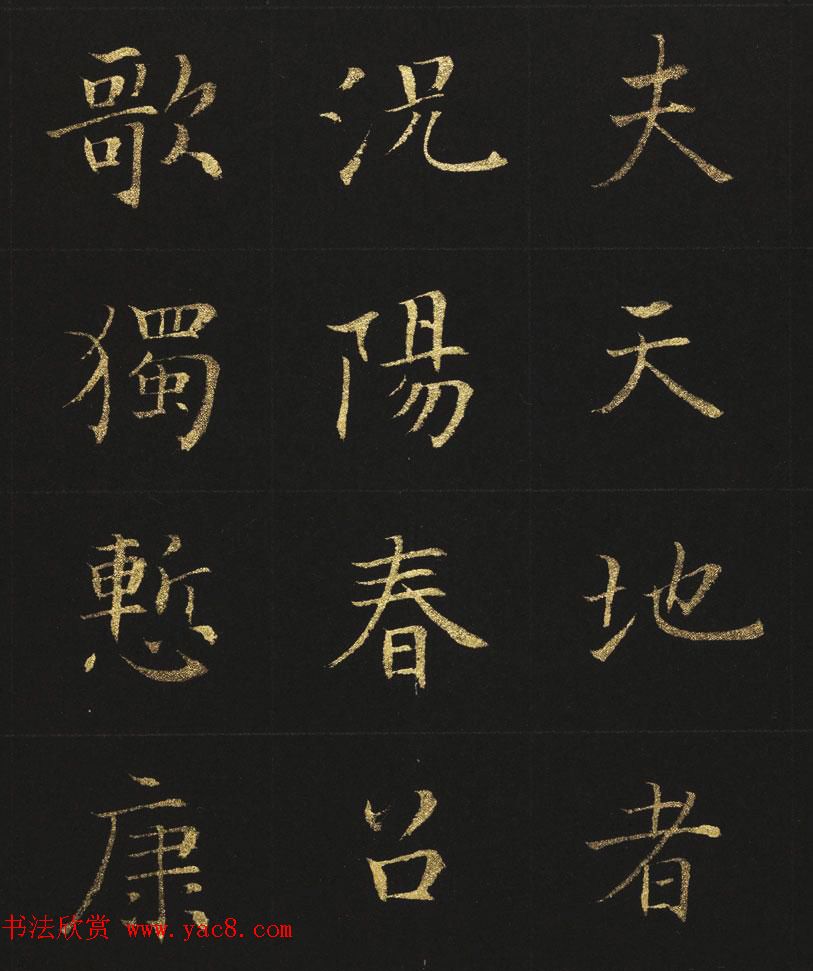 夫天地者
況陽春召
歌獨慙康
书法欣赏 www.yac8.com